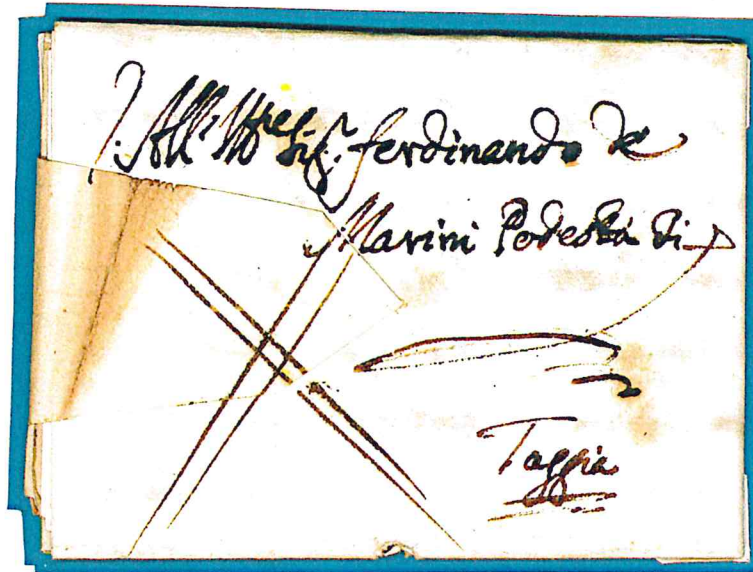 All' Ill.re Sig.r ferdinando de
Marini Podestà di
Taggia